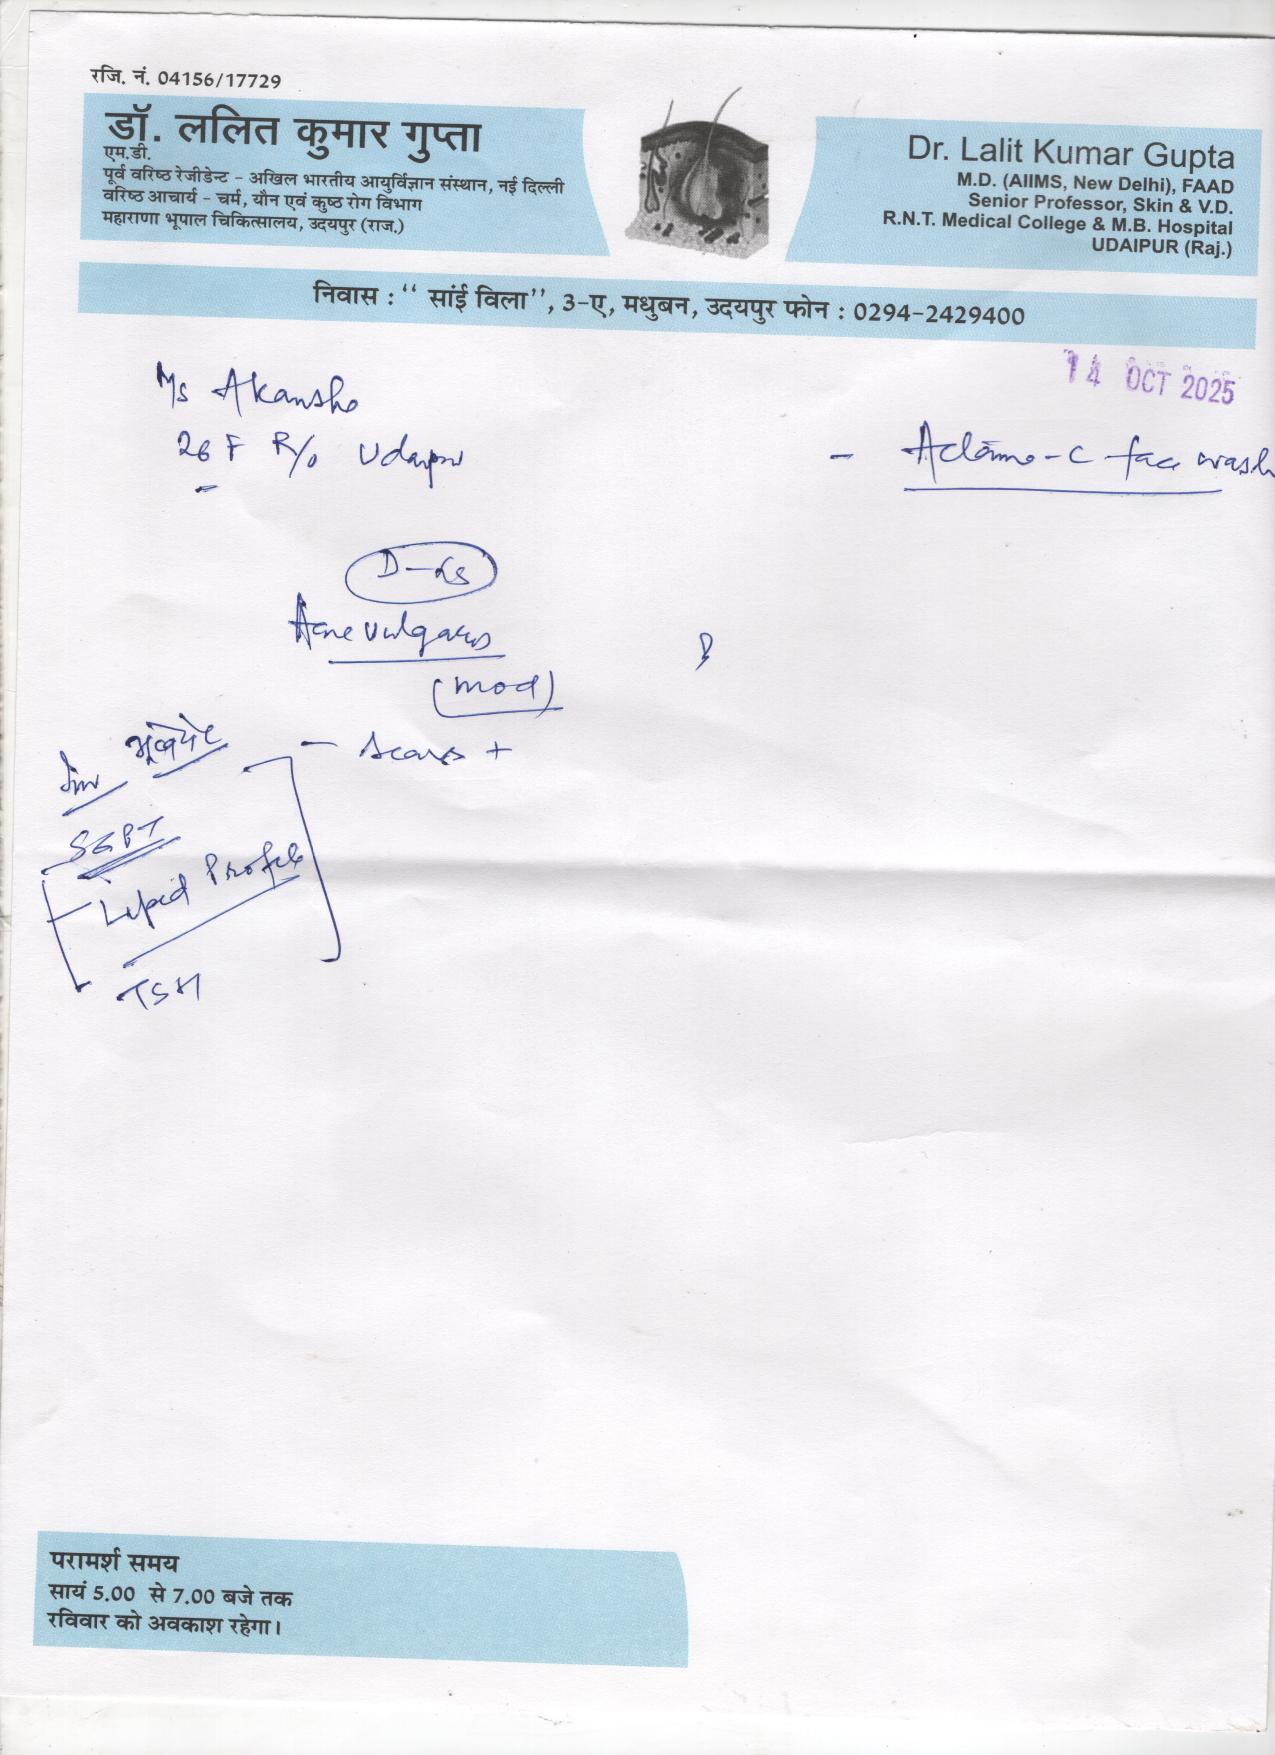 रजि. नं. 04156/17729
डॉ. ललित कुमार गुप्ता
एम.डी.
पूर्व वरिष्ठ रेजीडेन्ट - अखिल भारतीय आयुर्विज्ञान संस्थान, नई दिल्ली
वरिष्ठ आचार्य - चर्म, यौन एवं कुष्ठ रोग विभाग
महाराणा भूपाल चिकित्सालय, उदयपुर (राज.)
Dr. Lalit Kumar Gupta
M.D. (AIIMS, New Delhi), FAAD
Senior Professor, Skin & V.D.
R.N.T. Medical College & M.B. Hospital
UDAIPUR (Raj.)
निवास : “ सांई विला”, 3-ए, मधुबन, उदयपुर फोन : 0294-2429400
14 OCT 2025
M/s Akansha
26 F R/o Udaipur
- face wash
Acne vulgaris
(mod)
- Scars +
भूखे पेट
SGPT
Lipid Profile
TSH
परामर्श समय
सायं 5.00 से 7.00 बजे तक
रविवार को अवकाश रहेगा।